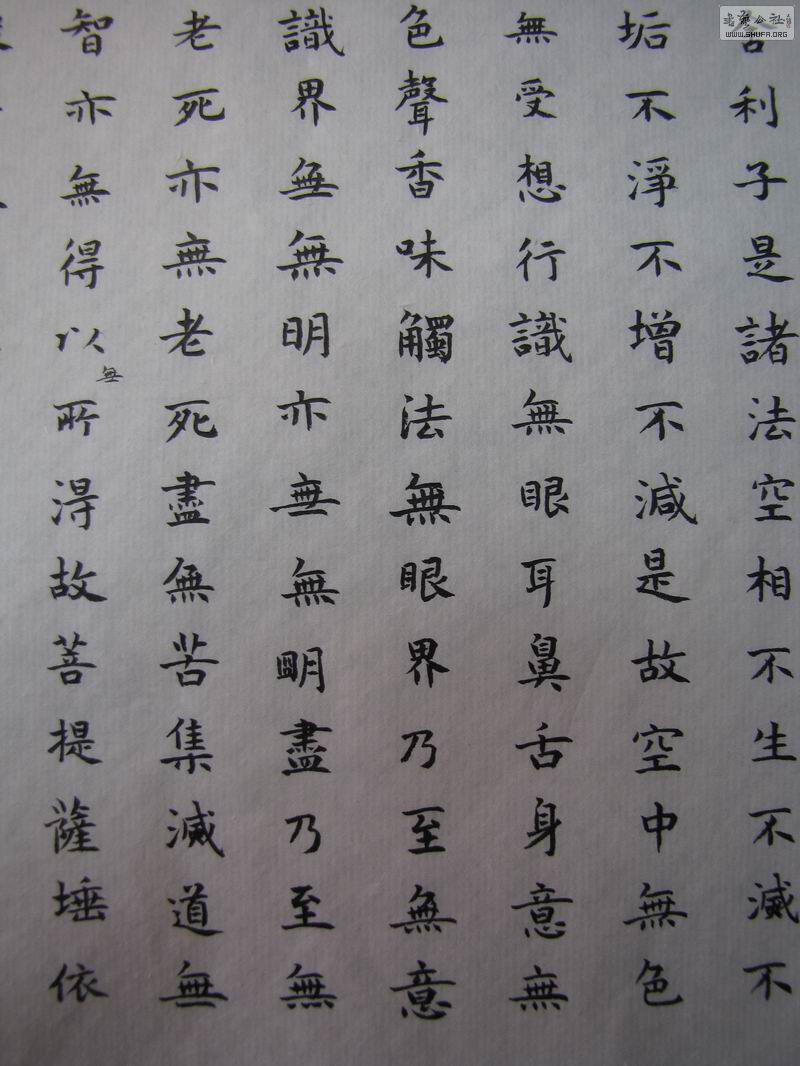 舍利子是諸法空相不生不滅不
垢不淨不增不減是故空中無色
無受想行識無眼耳鼻舌身意無
色聲香味觸法無眼界乃至無意
識界無無明亦無無明盡乃至無
老死亦無老死盡無苦集滅道無
智亦無得以無所得故菩提薩埵依
書藝公社
WWW.SHUFA.ORG